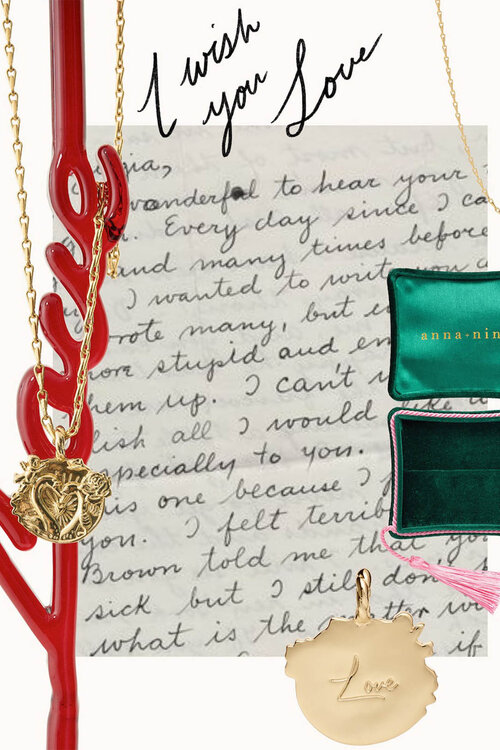 I wish
you Love
wonderful to hear your
Every day since I ca
and many times before
I wanted to write you
wrote many, but
more stupid and en
hem up. I can't
lish all I would
specially to you.
is one because I
you. I felt terrib
Brown told me that you
sick but I still don't
what is the matter
if
anna+nin
Love